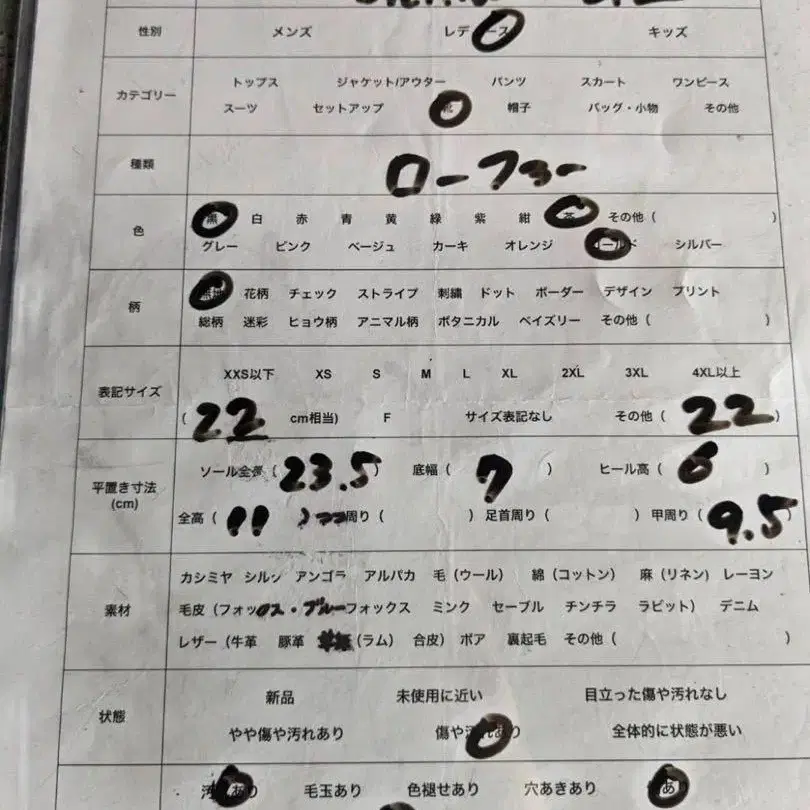 性別 メンズ レディース キッズ
カテゴリー トップス ジャケット/アウター パンツ スカート ワンピース
スーツ セットアップ 靴 帽子 バッグ・小物 その他
種類 ローファー
色 黒 白 赤 青 黄 緑 紫 紺 茶 その他 ( )
グレー ピンク ベージュ カーキ オレンジ ゴールド シルバー
柄 無地 花柄 チェック ストライプ 刺繍 ドット ボーダー デザイン プリント
総柄 迷彩 ヒョウ柄 アニマル柄 ボタニカル ペイズリー その他 ( )
表記サイズ XXS以下 XS S M L XL 2XL 3XL 4XL以上
( 22 cm相当) F サイズ表記なし その他 ( 22 )
平置き寸法 (cm) ソール全長 ( 23.5 ) 底幅 ( 7 ) ヒール高 ( 6 )
全高 ( 11 ) 周り ( ) 足首周り ( ) 甲周り ( 9.5 )
素材 カシミヤ シルク アンゴラ アルパカ 毛 (ウール) 綿 (コットン) 麻 (リネン) レーヨン
毛皮 (フォックス・ブルーフォックス ミンク セーブル チンチラ ラビット) デニム
レザー (牛革 豚革 (ラム) 合皮) ボア 裏起毛 その他 ( )
状態 新品 未使用に近い 目立った傷や汚れなし
やや傷や汚れあり 傷や汚れあり 全体的に状態が悪い
汚れあり 毛玉あり 色褪せあり 穴あきあり あり